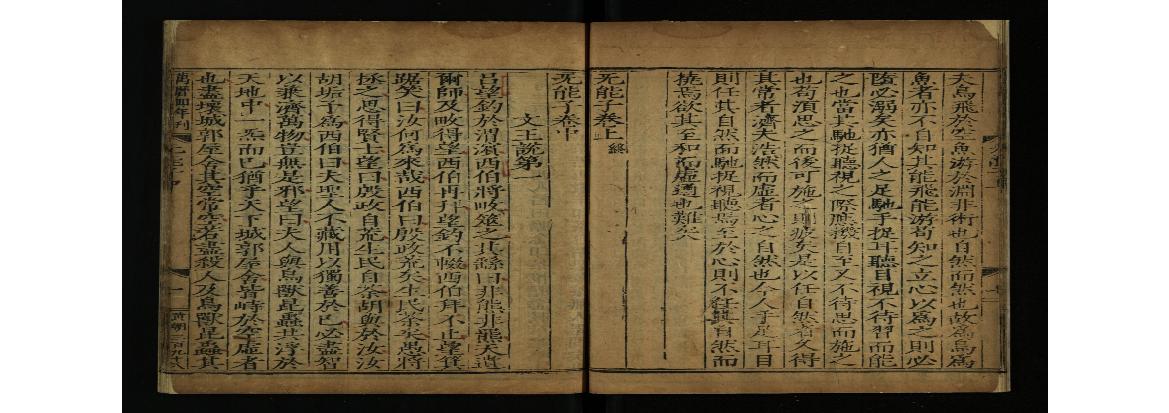 夫鳥飛於空魚游於淵非術也自然而然也故為鳥為
魚者亦不自知其能飛能游苟知之立心以為之則必
墮必溺矣亦猶人之足馳手捉耳聽目視不待習而能
之也當其馳捉聽視之際應機自至又不待思而施之
也苟須思之而後可施之則疲矣是以任自然者久得
其常者濟夫浩然而虛者心之自然也今人手足耳目
則任其自然而馳捉視聽焉至於心則不任其自然而
撓焉欲其至和而虛通也難矣
无能子卷上 終
无能子卷中
文王說第一
呂望釣於渭濱西伯將畋筮之其繇曰非熊非羆天遺
爾師及畋得望西伯再拜望釣不輟西伯拜不止望箕
踞笑曰汝何為來哉西伯曰殷政荒矣生民荼矣愚將
拯之思得賢士望曰殷政自荒生民自荼胡與於汝汝
胡垢予為西伯曰夫聖人不藏用以獨善於己必盡智
以兼濟萬物豈無是邪望曰夫人與鳥獸昆蟲共浮於
天地中一炁而已猶乎天下城郭屋舍皆峙於空虛者
也盡壞城郭屋舍其空常空若盡殺人及鳥獸昆蟲其
萬曆四年刊